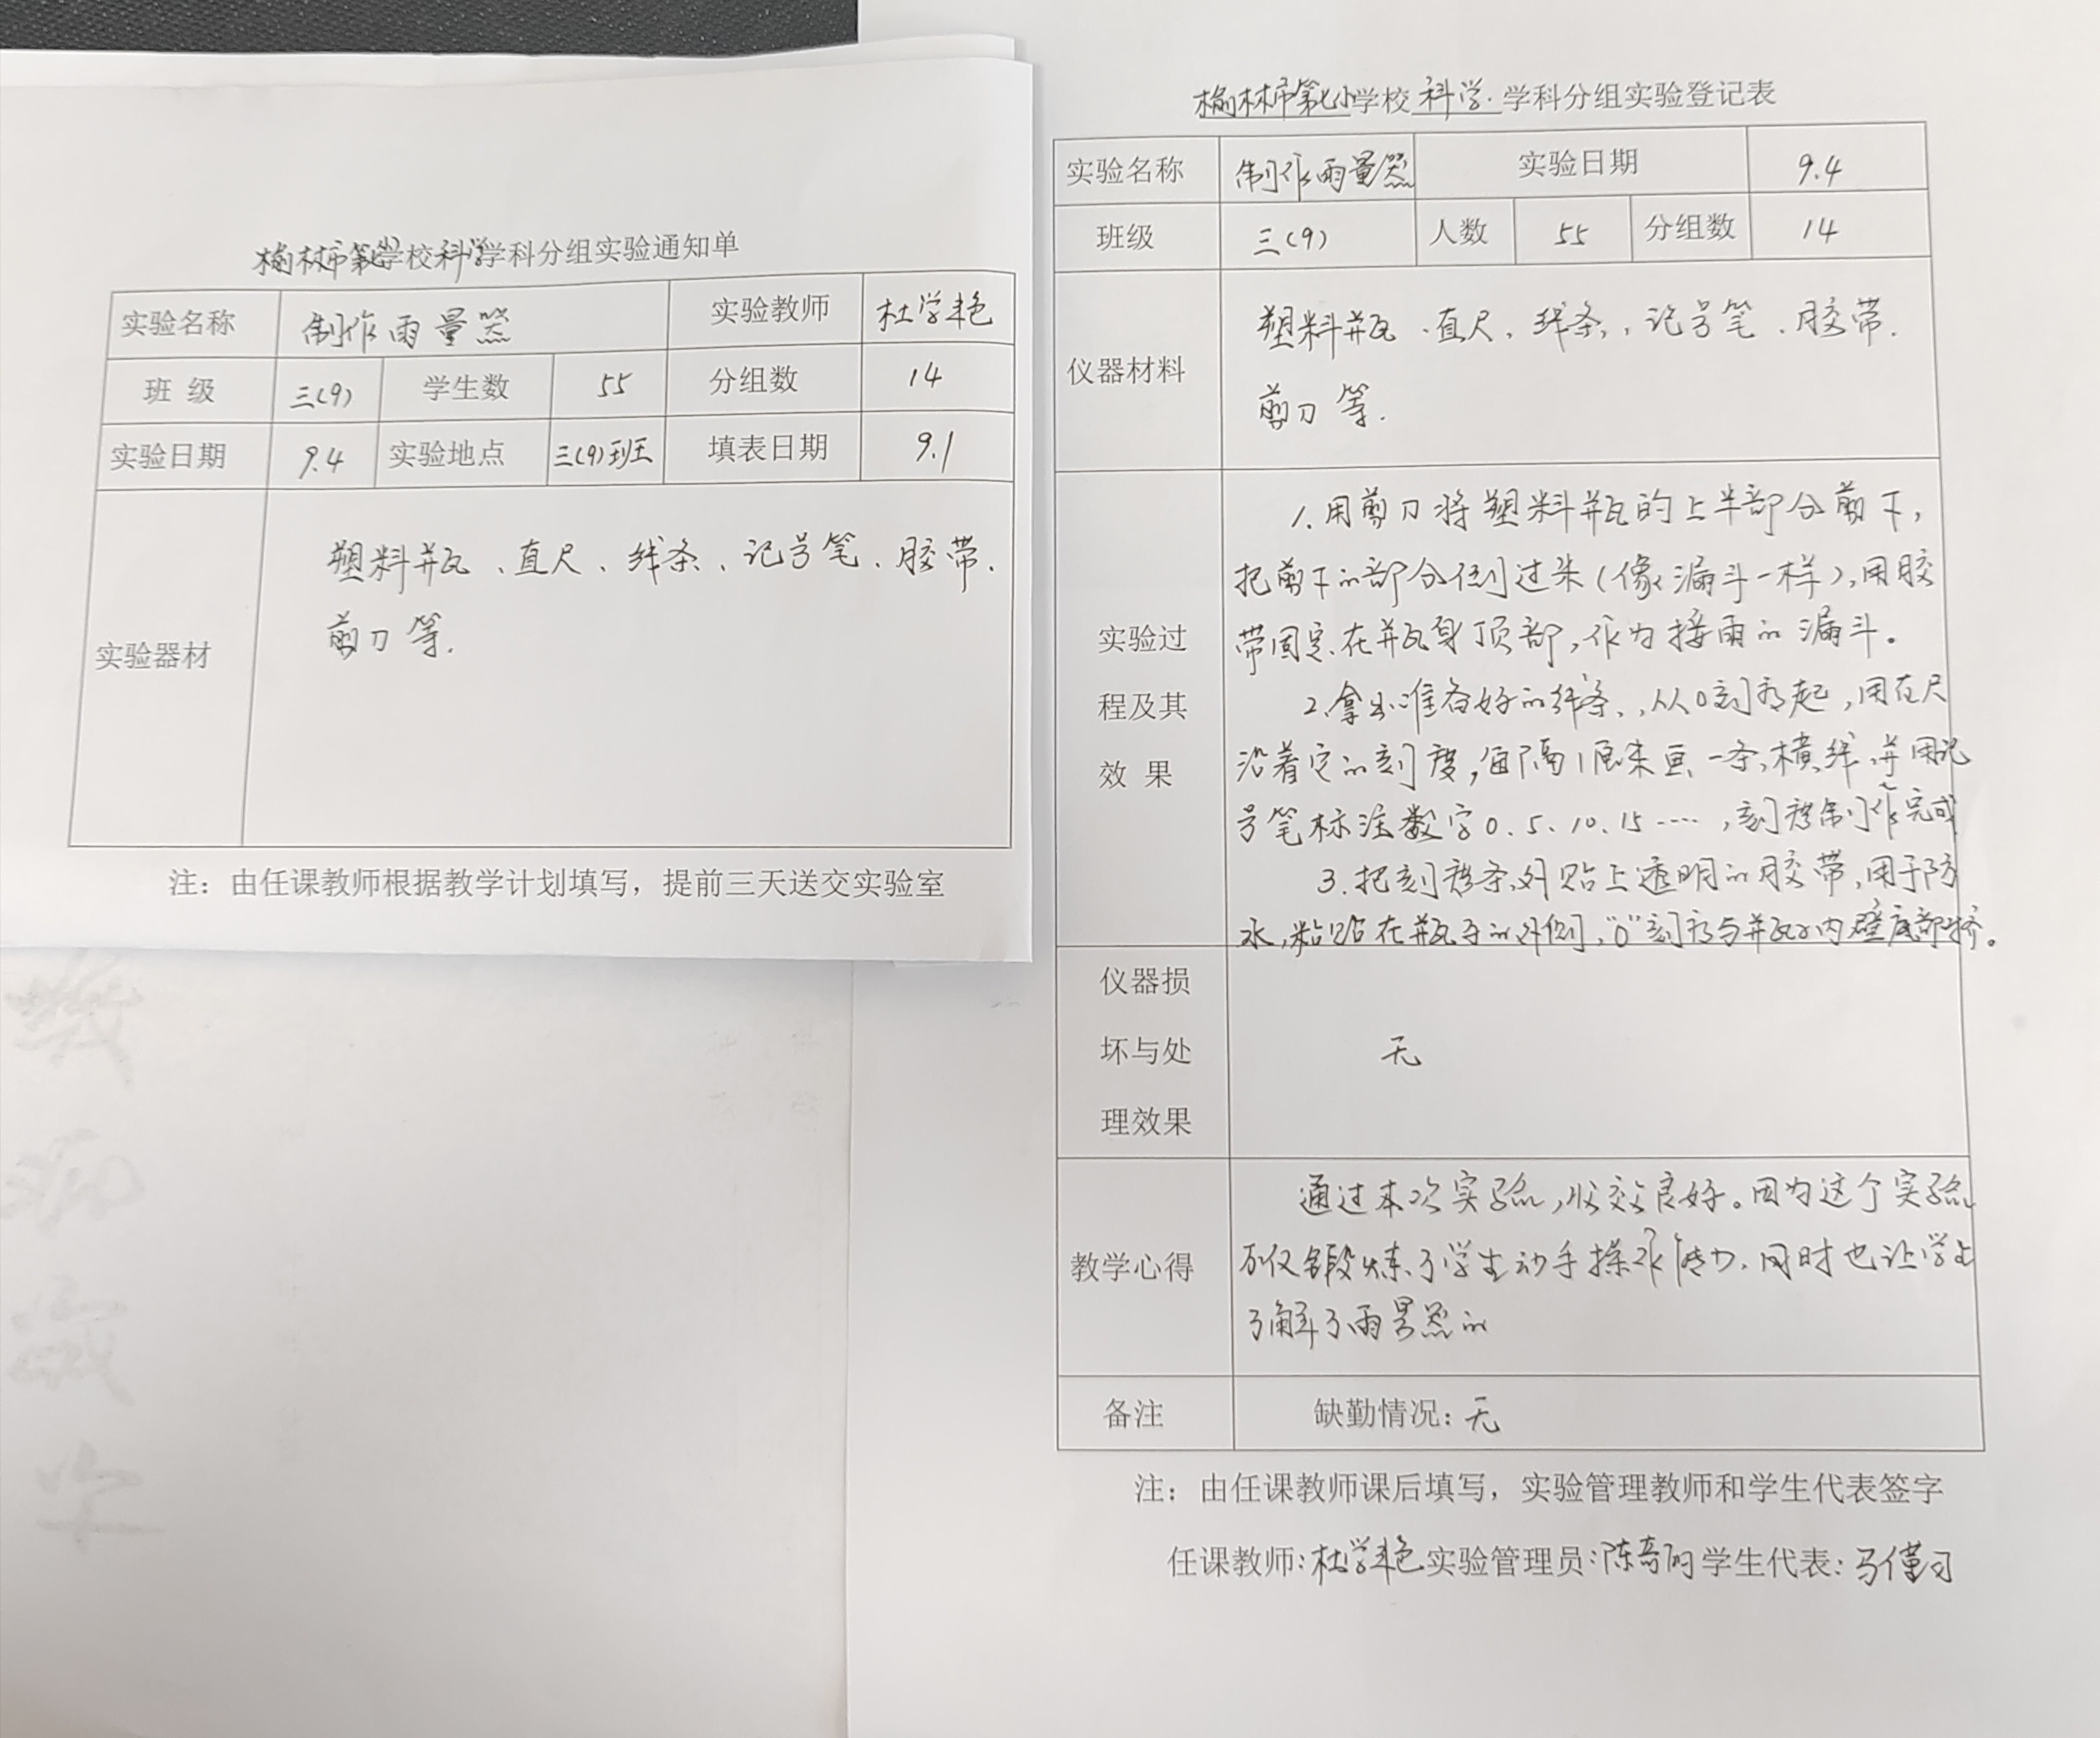 榆林市第七小学校科学学科分组实验通知单
实验名称 制作雨量器 实验教师 杜学艳
班 级 三(9) 学生数 55 分组数 14
实验日期 9.4 实验地点 三(9)班 填表日期 9.1
实验器材
塑料瓶、直尺、线条、记号笔、胶带.
剪刀等.
注：由任课教师根据教学计划填写，提前三天送交实验室
榆林市第七小学校 科学 学科分组实验登记表
实验名称 制作雨量器 实验日期 9.4
班级 三(9) 人数 55 分组数 14
仪器材料
塑料瓶、直尺、线条、记号笔、胶带.
剪刀等.
实验过
程及其
效 果
1.用剪刀将塑料瓶的上半部分剪下，
把剪下的部分倒过来(像漏斗一样),用胶
带固定在瓶身顶部,作为接雨的漏斗。
2.拿出准备好的线条,从0刻度起,用直尺
沿着它的刻度,每隔1厘米画一条横线,并用记
号笔标注数字0.5、10、15……,刻度制作完成
3.把刻度条外贴上透明的胶带,用于防
水,粘贴在瓶子的外侧,"0"刻度与瓶子内壁底部齐。
仪器损
坏与处
理效果
无
教学心得
通过本次实验,收效良好。因为这个实验
不仅锻炼了学生动手操作能力,同时也让学生
了解了雨量器的
备注 缺勤情况：无
注：由任课教师课后填写，实验管理教师和学生代表签字
任课教师：杜学艳 实验管理员：陈 学生代表：马